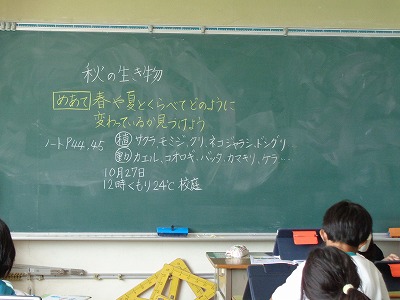 秋の生き物
めあて 春や夏とくらべてどのように
変わっているか見つけよう
ノートP44,45
植 サクラ、モミジ、クリ、ネコジャラシ、ドングリ
動 カエル、コオロギ、バッタ、カマキリ、ケラ…
10月27日
12時くもり24℃ 校庭